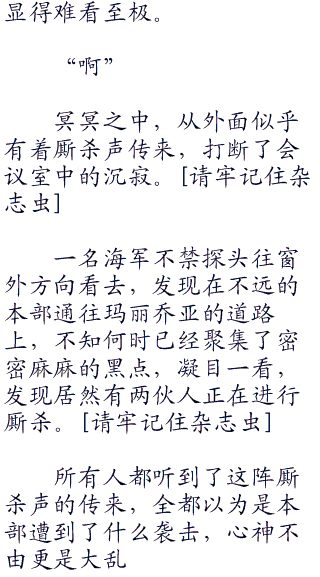 显得难看至极。
“啊”
冥冥之中，从外面似乎
有着厮杀声传来，打断了会
议室中的沉寂。[请牢记住杂
志虫]
一名海军不禁探头往窗
外方向看去，发现在不远的
本部通往玛丽乔亚的道路
上，不知何时已经聚集了密
密麻麻的黑点，凝目一看，
发现居然有两伙人正在进行
厮杀。[请牢记住杂志虫]
所有人都听到了这阵厮
杀声的传来，全都以为是本
部遭到了什么袭击，心神不
由更是大乱